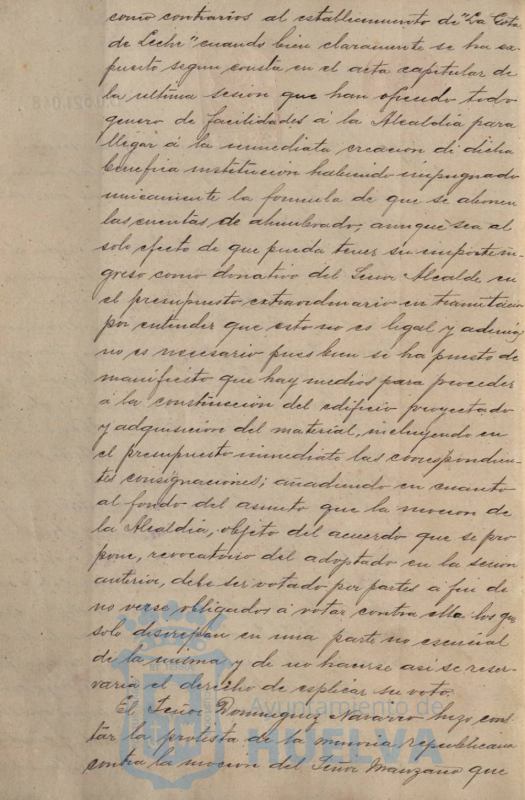 como contrarios al establecimiento de "La Gota
de Leche" cuando bien claramente se ha ex
puesto segun consta en el acta capitular de
la ultima sesión que han ofrecido todo
genero de facilidades á la Alcaldia para
llegar á la inmediata creacion de dicha
benefica institucion habiendo impugnado
unicamente la formula de que se abonen
las cuentas de alumbrado, aunque sea al
solo efecto de que pueda tener su importe in-
greso como donativo del Señor Alcalde en
el presupuesto extraordinario en tramitacion
por entender que esto no es legal y además
no es necesario pues bien se ha puesto de
manifiesto que hay medios para proceder
á la construccion del edificio proyectado
y adquisicion del material, incluyendo en
el presupuesto inmediato las correspondien-
tes consignaciones; añadiendo en cuanto
al fondo del asunto que la mocion de
la Alcaldia, objeto del acuerdo que se pro
pone, revocatorio del adoptado en la sesion
anterior, debe ser votado por partes a fin de
no verse obligados á votar contra ella los que
solo discrepan en una parte no esencial
de la misma y de no hacerse asi se reser-
varia el derecho de esplicar su voto.
El Señor Dominguez Navarro hizo cons
tar la protesta de la minoria republicana
contra la mocion del Señor Manzano que
Ayuntamiento de
HUELVA